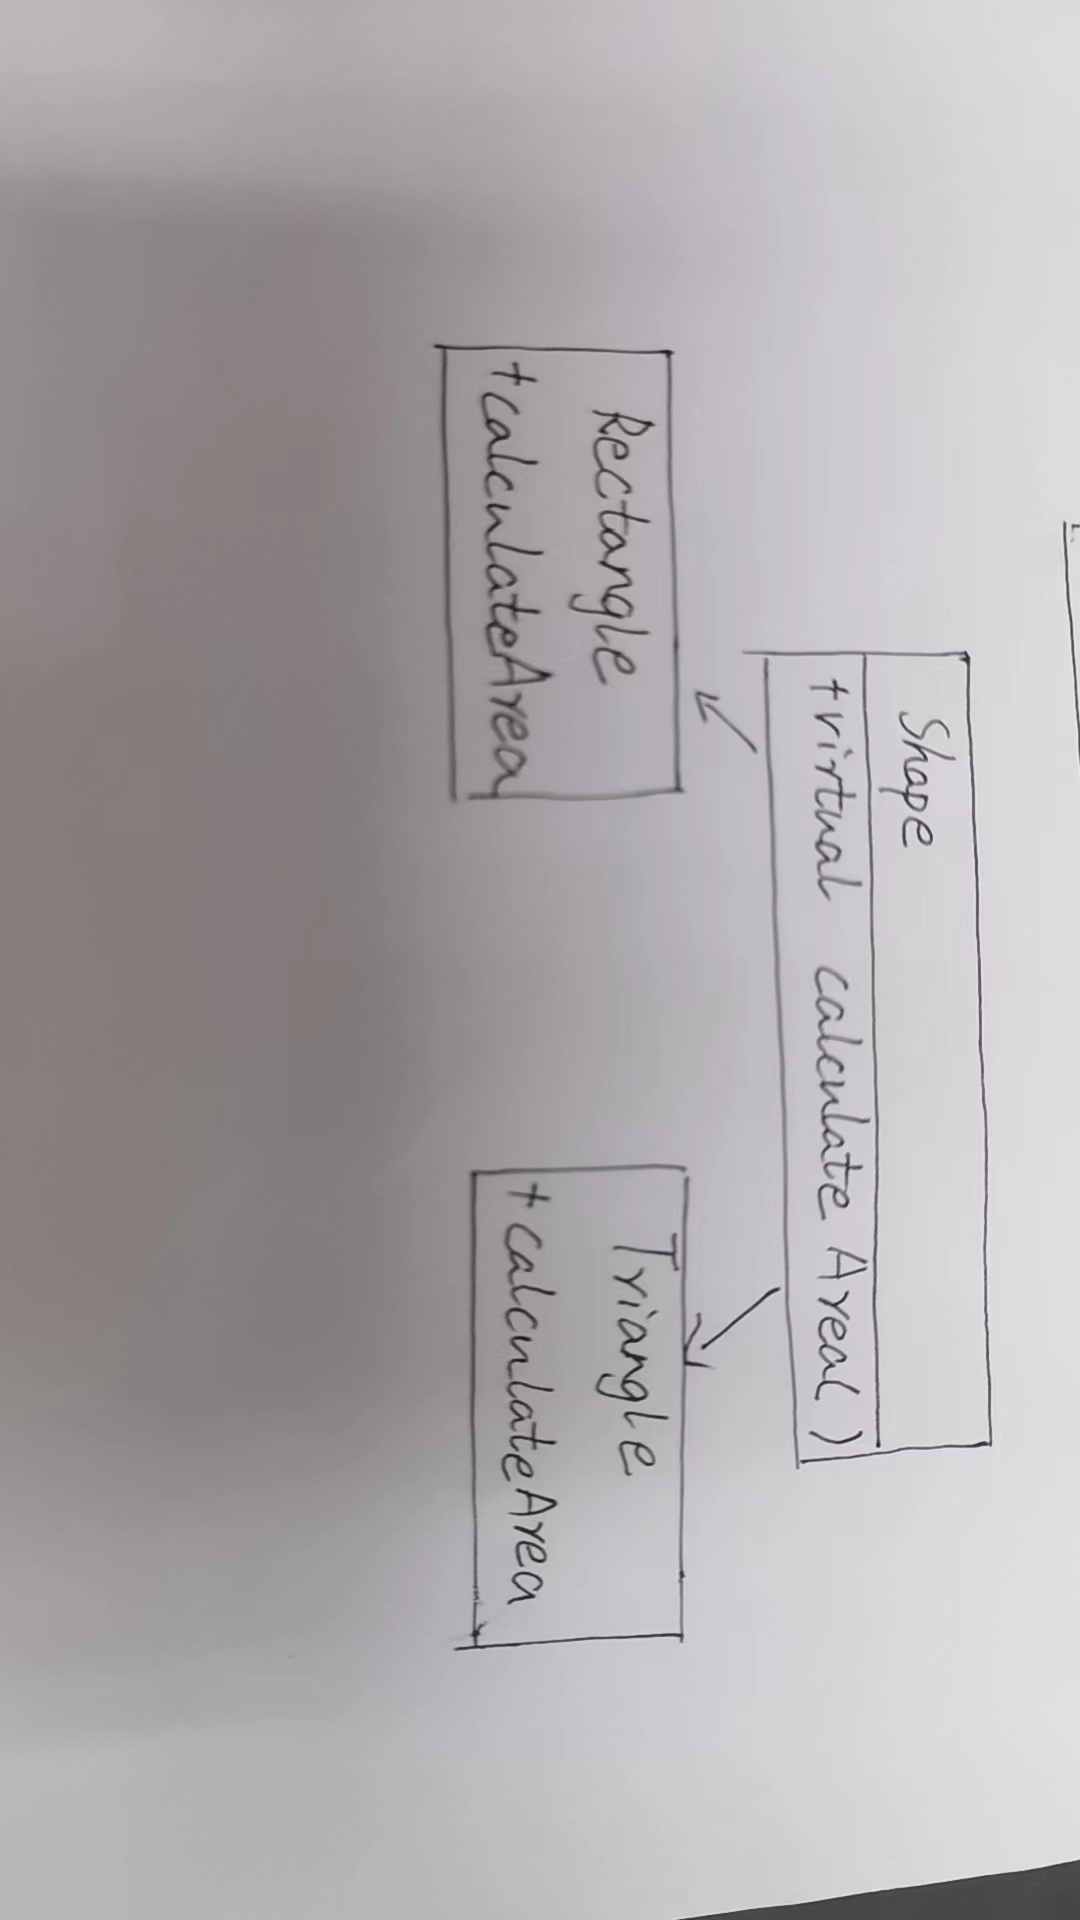 Shape
+virtual calculateArea()
Rectangle
+calculateArea
Triangle
+calculateArea